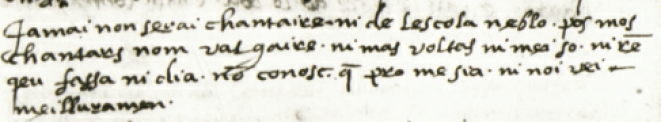 Jamai non serai chantaire · ni de lescola neblo · pos mos
chantars nom val gaire · ni mas voltas ni mei so · ni rē
qeu fassa ni dia · nō conosc · q̄ pro me sia · ni noi vei
meilluramen ·